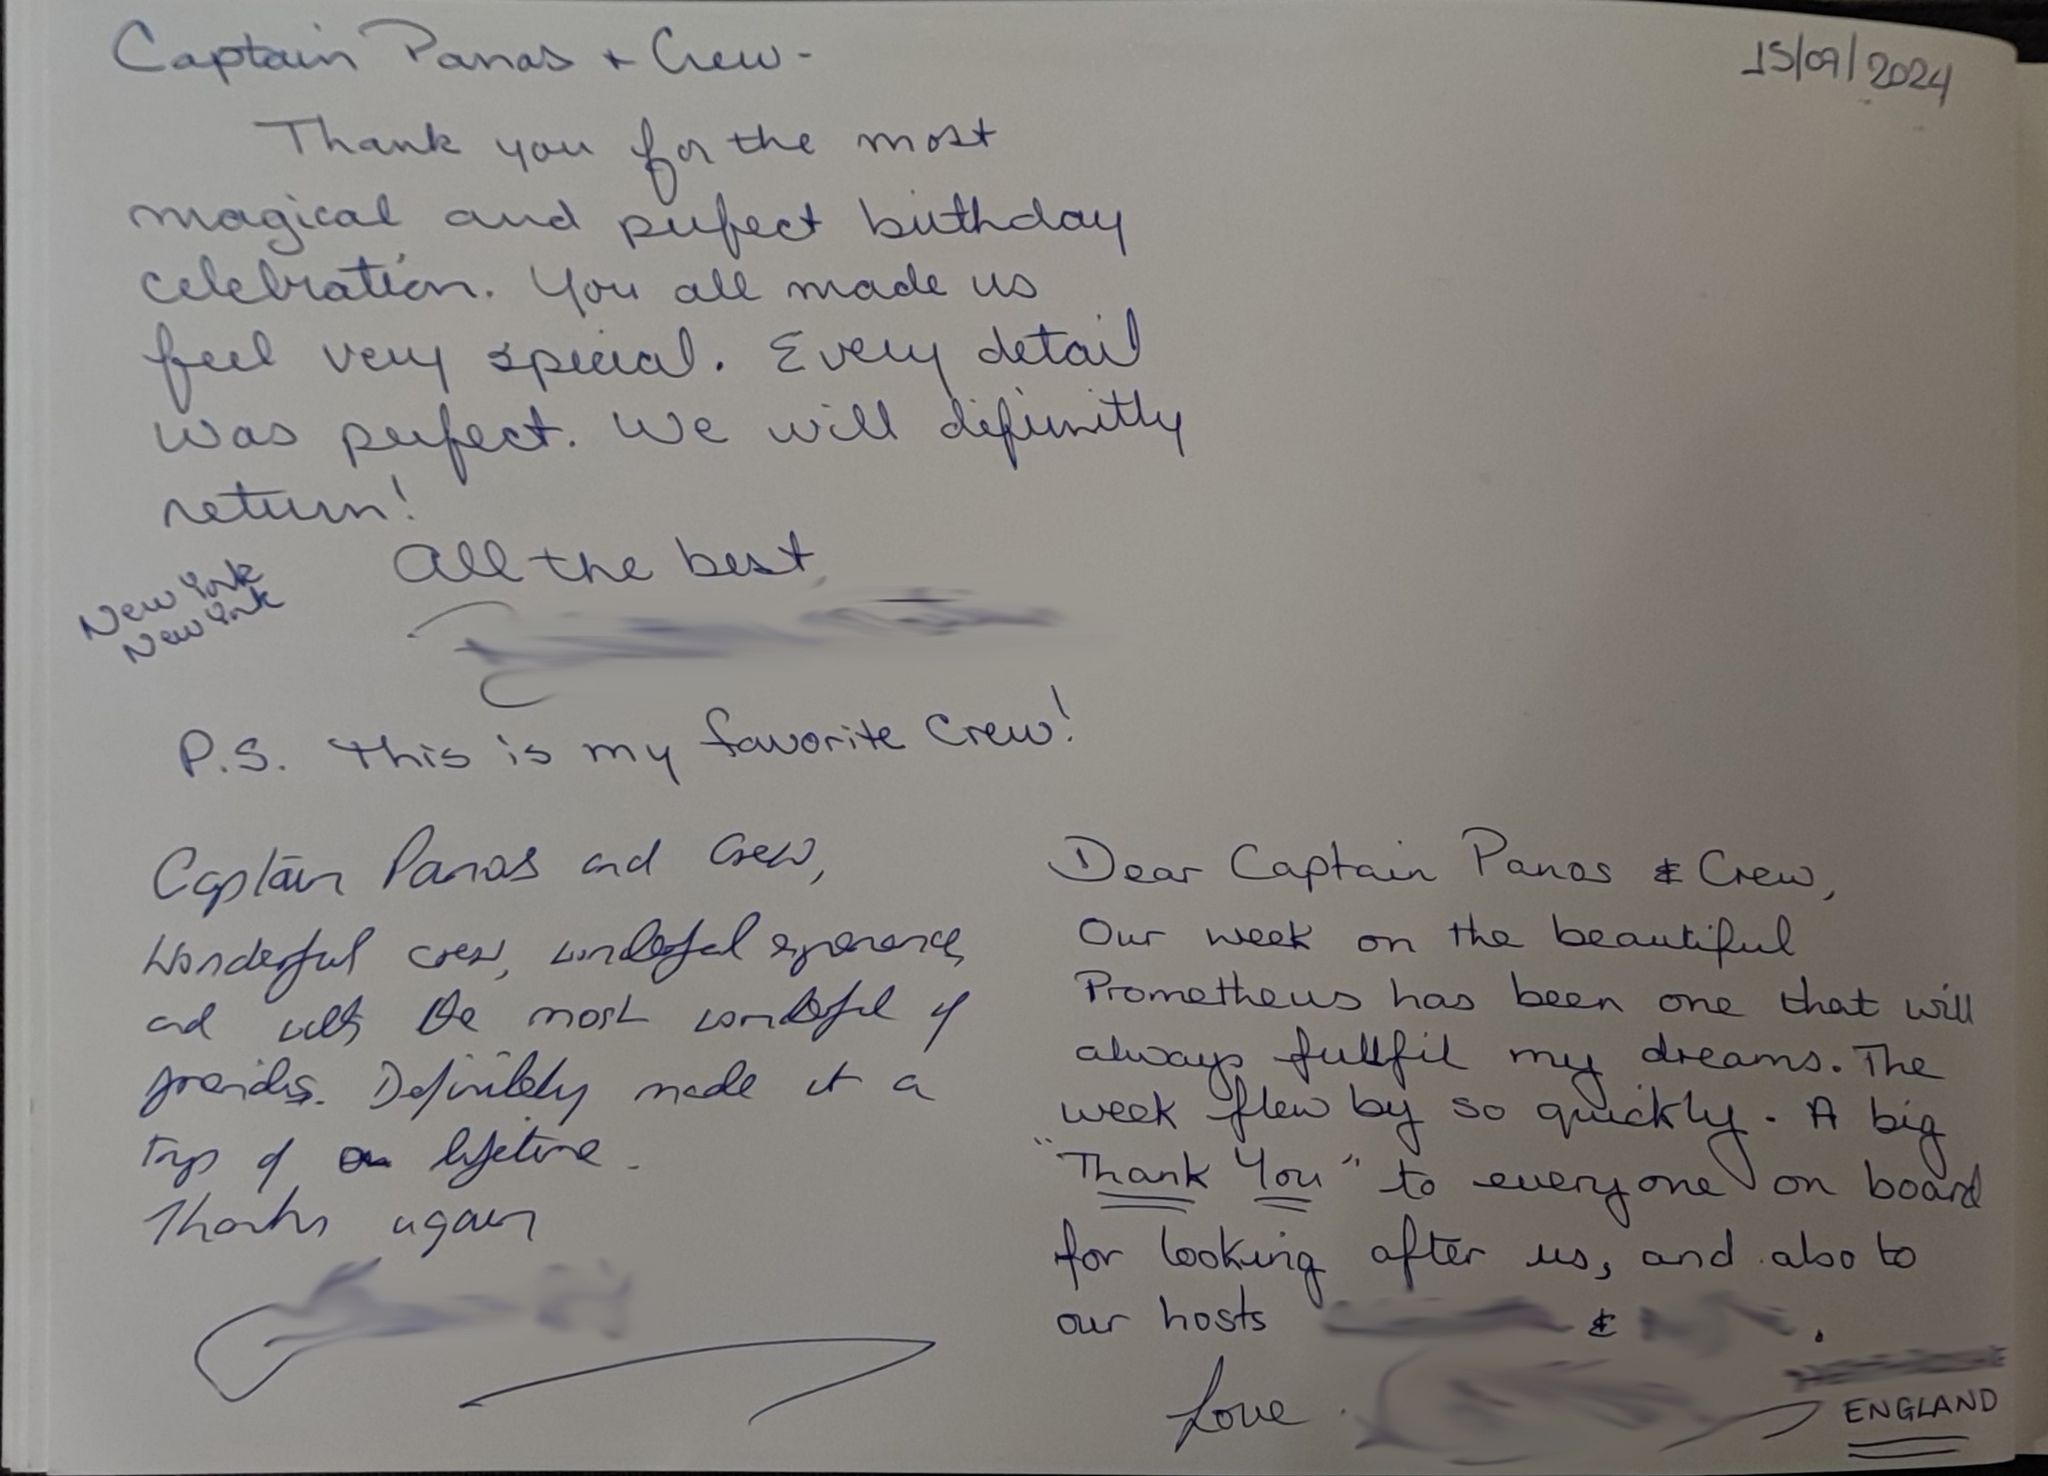 Captain Panas + Crew-
15/09/2024
Thank you for the most
magical and perfect birthday
celebration. You all made us
feel very special. Every detail
was perfect. We will definitly
return!
All the best,
New York
New York
P.S. This is my favorite Crew!
Captain Panas and Crew,
Wonderful crew, wonderful experience,
and with the most wonderful of
friends. Definitely made it a
trip of a lifetime.
Thanks again
Dear Captain Panos & Crew,
Our week on the beautiful
Prometheus has been one that will
always fullfil my dreams. The
week flew by so quickly. A big
"Thank You" to everyone on board
for looking after us, and also to
our hosts & .
Love
ENGLAND